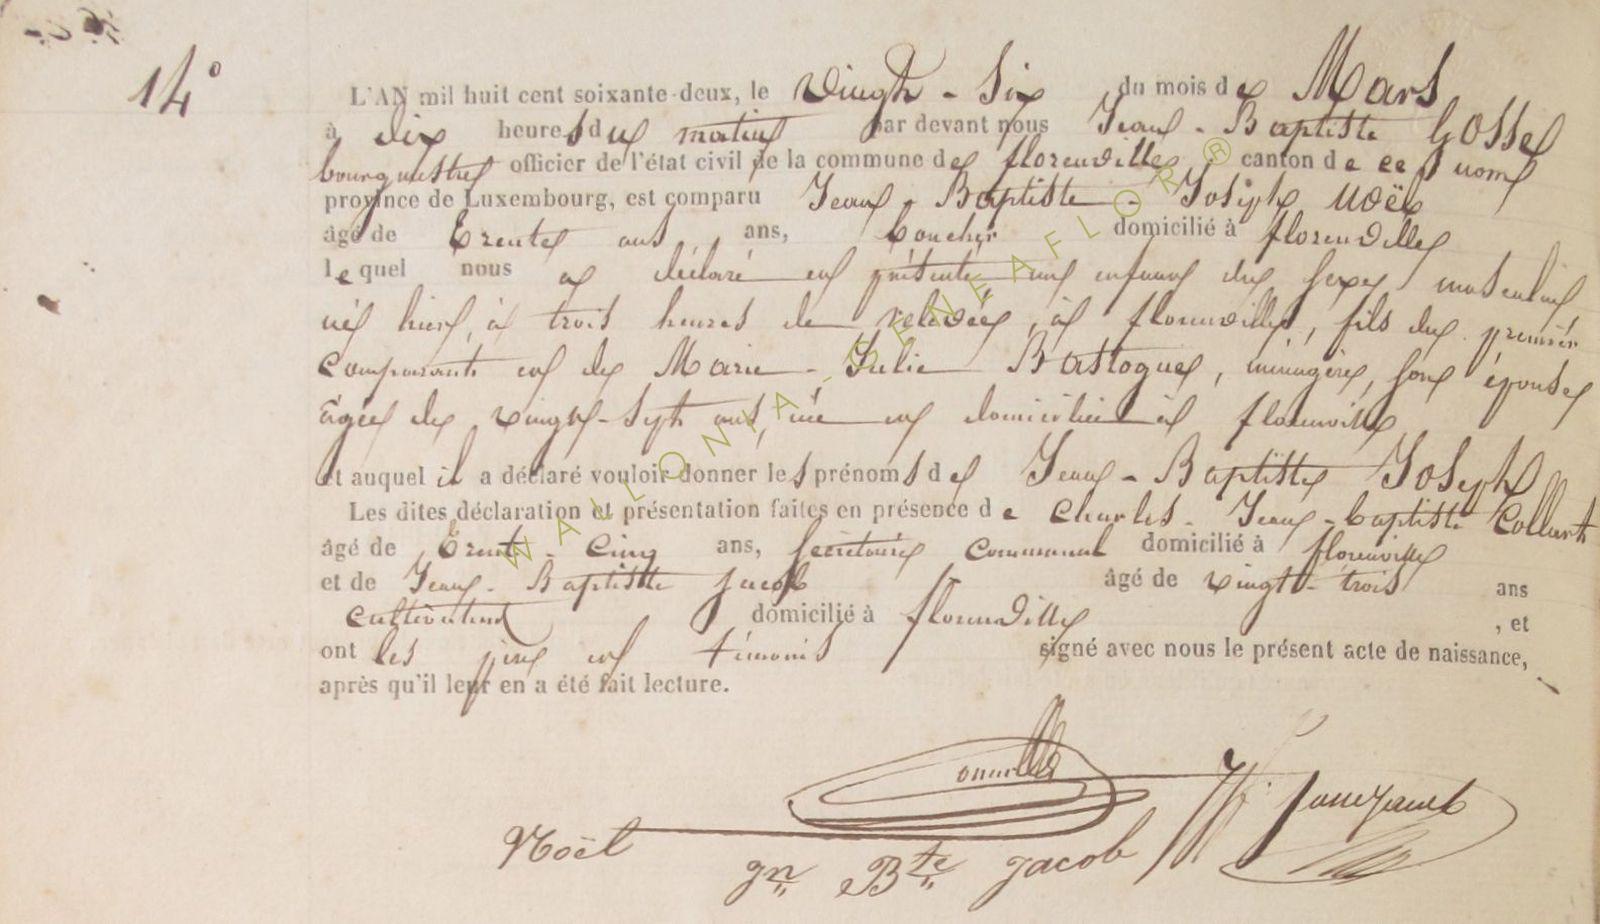 14°
L'AN mil huit cent soixante-deux, le vingt-six du mois de Mars
à dix heures du matin par devant nous Jean-Baptiste Gosse
bourgmestre officier de l'état civil de la commune de florenville, canton de ce nom
province de Luxembourg, est comparu Jean-Baptiste-Joseph Noël
âgé de Trente ans ans, boucher domicilié à florenville
lequel nous a déclaré et présenté un enfant du sexe masculin
né hier, à trois heures de relevée, à florenville, fils du premier
comparant et de Marie-Julie Bastogne, ménagère, son épouse
âgée de vingt-sept ans, née et domiciliée à florenville
et auquel il a déclaré vouloir donner les prénoms de Jean-Baptiste Joseph
Les dites déclaration et présentation faites en présence de Charles-Jean-baptiste Collart
âgé de Trente-Cinq ans, Secrétaire Communal domicilié à florenville
et de Jean-Baptiste jacob âgé de vingt-trois ans
Cultivateur domicilié à florenville, et
ont les père et témoins signé avec nous le présent acte de naissance,
après qu'il leur en a été fait lecture.
Noël
Jn Bte Jacob
WALLONIA-GENEAFLOR®